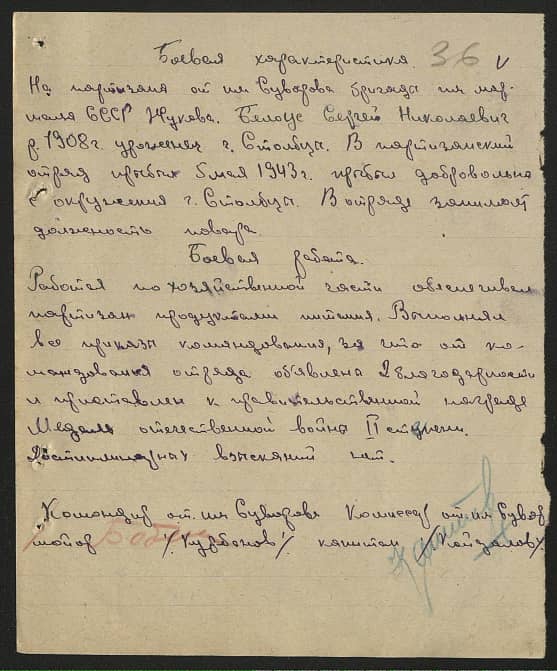 Боевая характеристика 36 v
На партизана от. им Суворова бригады им мар-
шала СССР Жукова. Белоус Сергей Николаевич
р. 1908г. уроженец г. Столбцы. В партизанский
отряд прибыл 5 мая 1943г. прибыл добровольна
с окружения г. Столбцы. В отряде занимает
должность повара.
Боевая работа.
Работая по хозяйственной части обеспечивал
партизан продуктами питания. Выполнял
все приказы командования, за что от ко-
мандования отряда объявлена 2 благодарности
и приставлен к правительственной награде
Медаль отечественной войны II степени.
Дистиплинарных взысканий нат.
Командир от. им Суворова Комиссар от. им Сувор
майор /Курбанов/ капитан